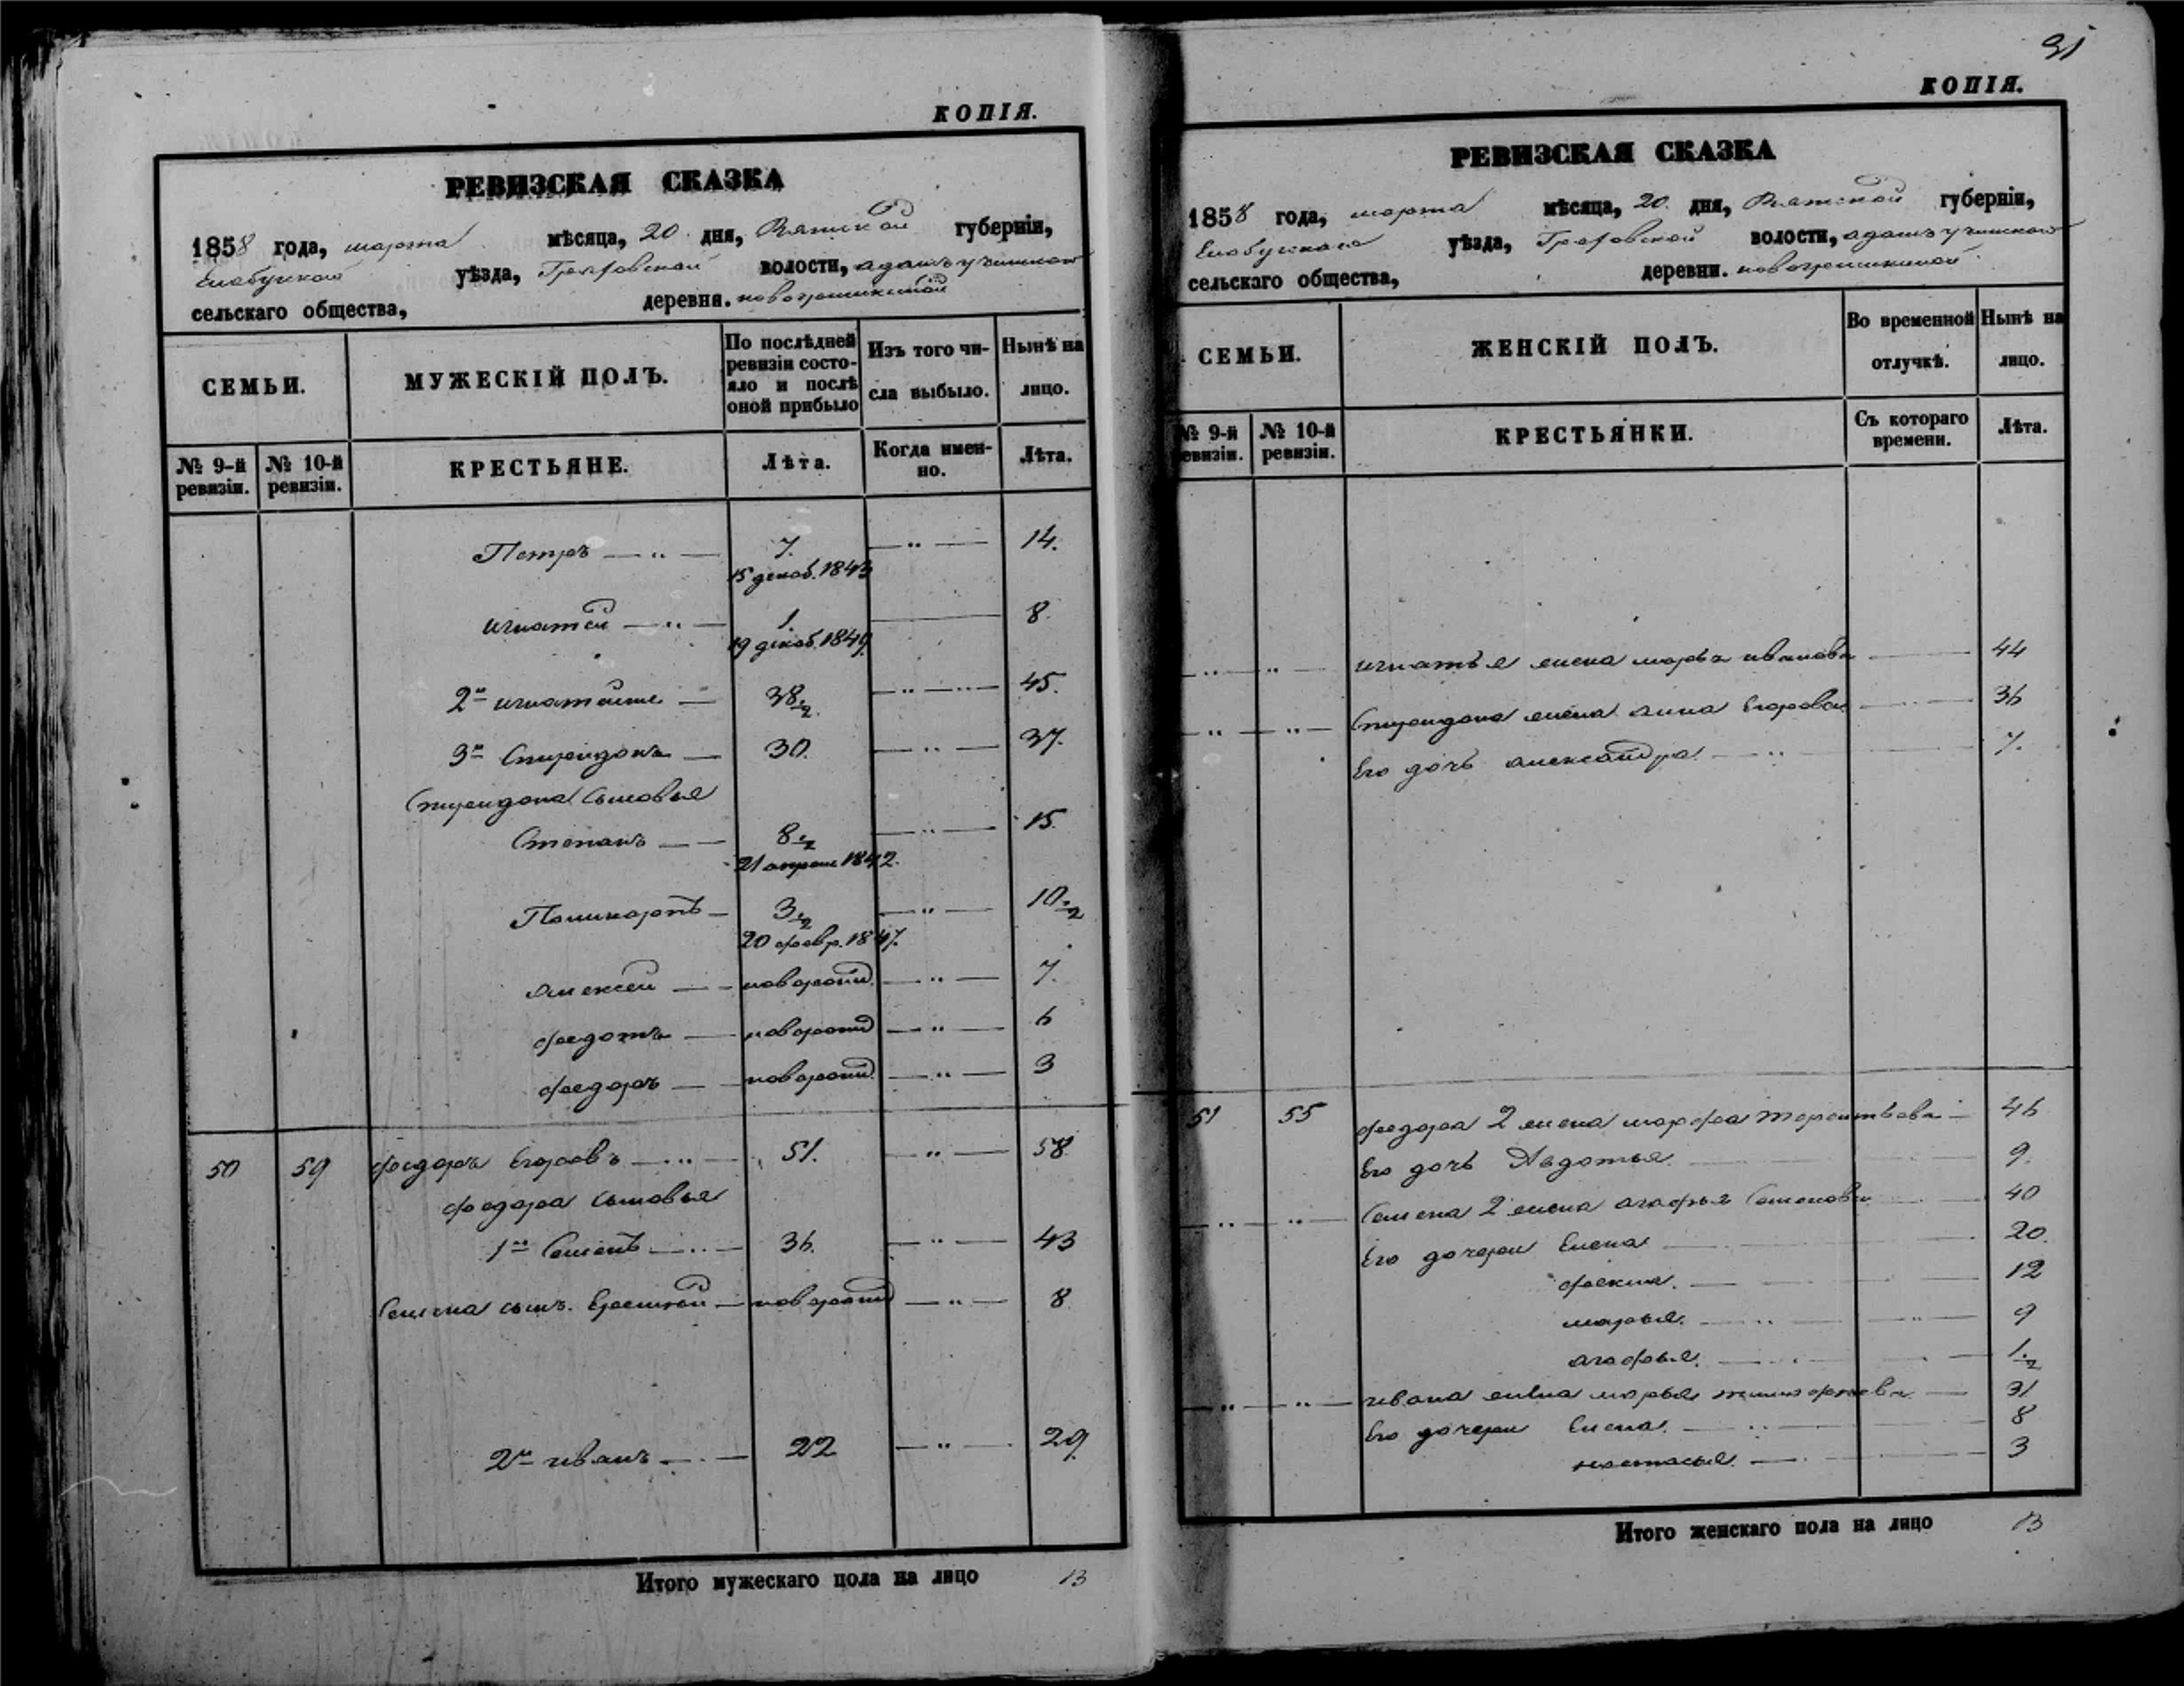 КОПІЯ.
РЕВИЗСКАЯ СКАЗКА
1858 года, марта мѣсяца, 20 дня, Вятской губерніи,
Елабужской уѣзда, волости,
сельскаго общества, деревня.
СЕМЬИ. МУЖЕСКІЙ ПОЛЪ. По послѣдней ревизіи состояло и послѣ оной прибыло Изъ того числа выбыло. Нынѣ на лицо.
№ 9-й ревизіи. № 10-й ревизіи. КРЕСТЬЯНЕ. Лѣта. Когда именно. Лѣта.
Петръ — „ — 7. — „ — 14.
15 декаб. 1843
игнатей — „ — 1. — 8.
19 декаб. 1849
2й — 38 1/2. — „ — „ — 45.
3й Спиридонъ — 30. — „ — 37.
Спиридона сыновья
Степанъ — — 8 1/2 — „ — 15.
21 апреля 1842.
Поликарпъ — 3 1/2 — „ — 10 1/2
20 февр. 1847.
алексей — — новорожд. — „ — 7.
федотъ — новорожд — „ — 6
федоръ — новорожд. — „ — 3
50 59 федоръ Егоровъ — „ — 51. — „ — 58
федора сыновья
1й Семенъ — „ — 36. — „ — 43
Семена сынъ. Еремей — новорожд — „ — 8
2й иванъ — 22 — „ — 29.
Итого мужескаго пола на лицо 13
31
КОПІЯ.
РЕВИЗСКАЯ СКАЗКА
1858 года, марта мѣсяца, 20 дня, Вятской губерніи,
Елабужскаго уѣзда, волости,
сельскаго общества, деревни.
СЕМЬИ. ЖЕНСКІЙ ПОЛЪ. Во временной отлучкѣ. Нынѣ на лицо.
№ 9-й ревизіи. № 10-й ревизіи. КРЕСТЬЯНКИ. Съ котораго времени. Лѣта.
„ — „ — игнатья жена марья иванова — 44
„ — „ — Спиридона жена анна Егорова — 36
Его дочь александра. — „ — 7.
51 55 федора 2 жена марфа терентьева — 46
Его дочь Авдотья. — 9.
„ — „ — Семена 2 жена агафья Семенова — 40
Его дочери Елена — 20.
фекла. — 12
марья. — „ — „ — 9
агафья. — 1 1/2
„ — „ — ивана жена марья — 31
Его дочери Елена. — „ — 8
настасья. — 3
Итого женскаго пола на лицо 13